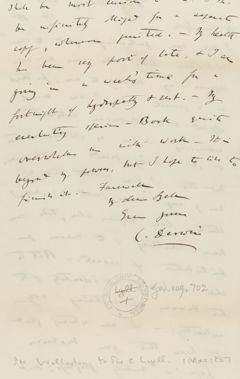 shall be most
be infinitely obliged for a separate
copy, whenever printed. — My health
has been very poor of late, & I am
going in a week's time for a
fortnight of hydropathy & rest. — My
everlasting species-Book quite
overwhelms me with work — It is
beyond my powers, but I hope to live to
finish it. — Farewell
My dear
Ever yours
C. Darwin
Lyell
1
702
Wollaston to Sir C. Lyell. 1 Mar 1857